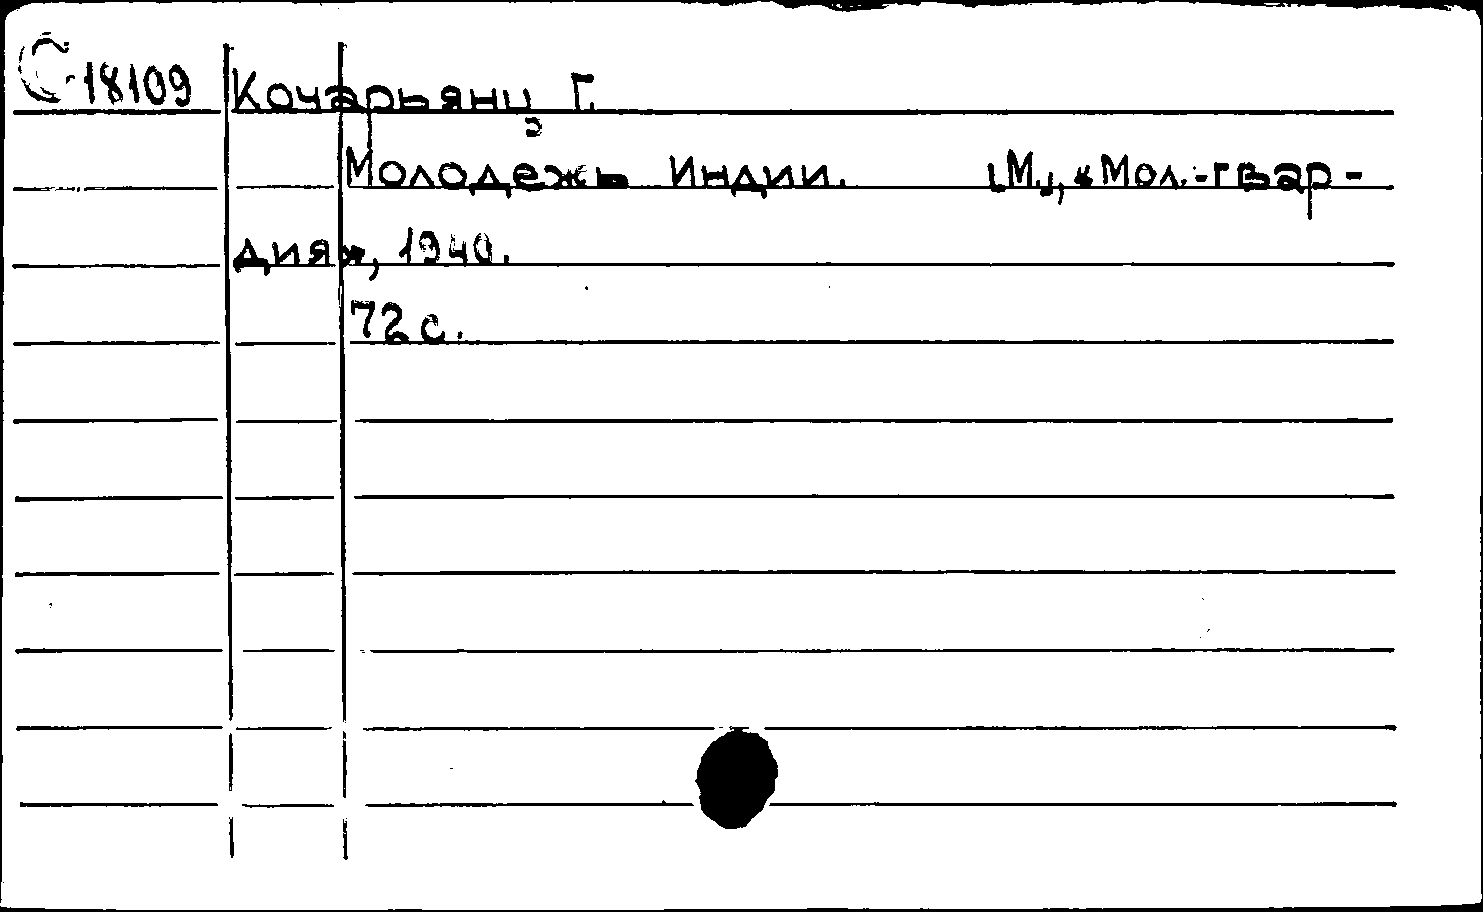 С 18109 Кочарьянц Г.
Молодежь Индии. [М.], «Мол. гвар-
дия», 1940.
72 с.